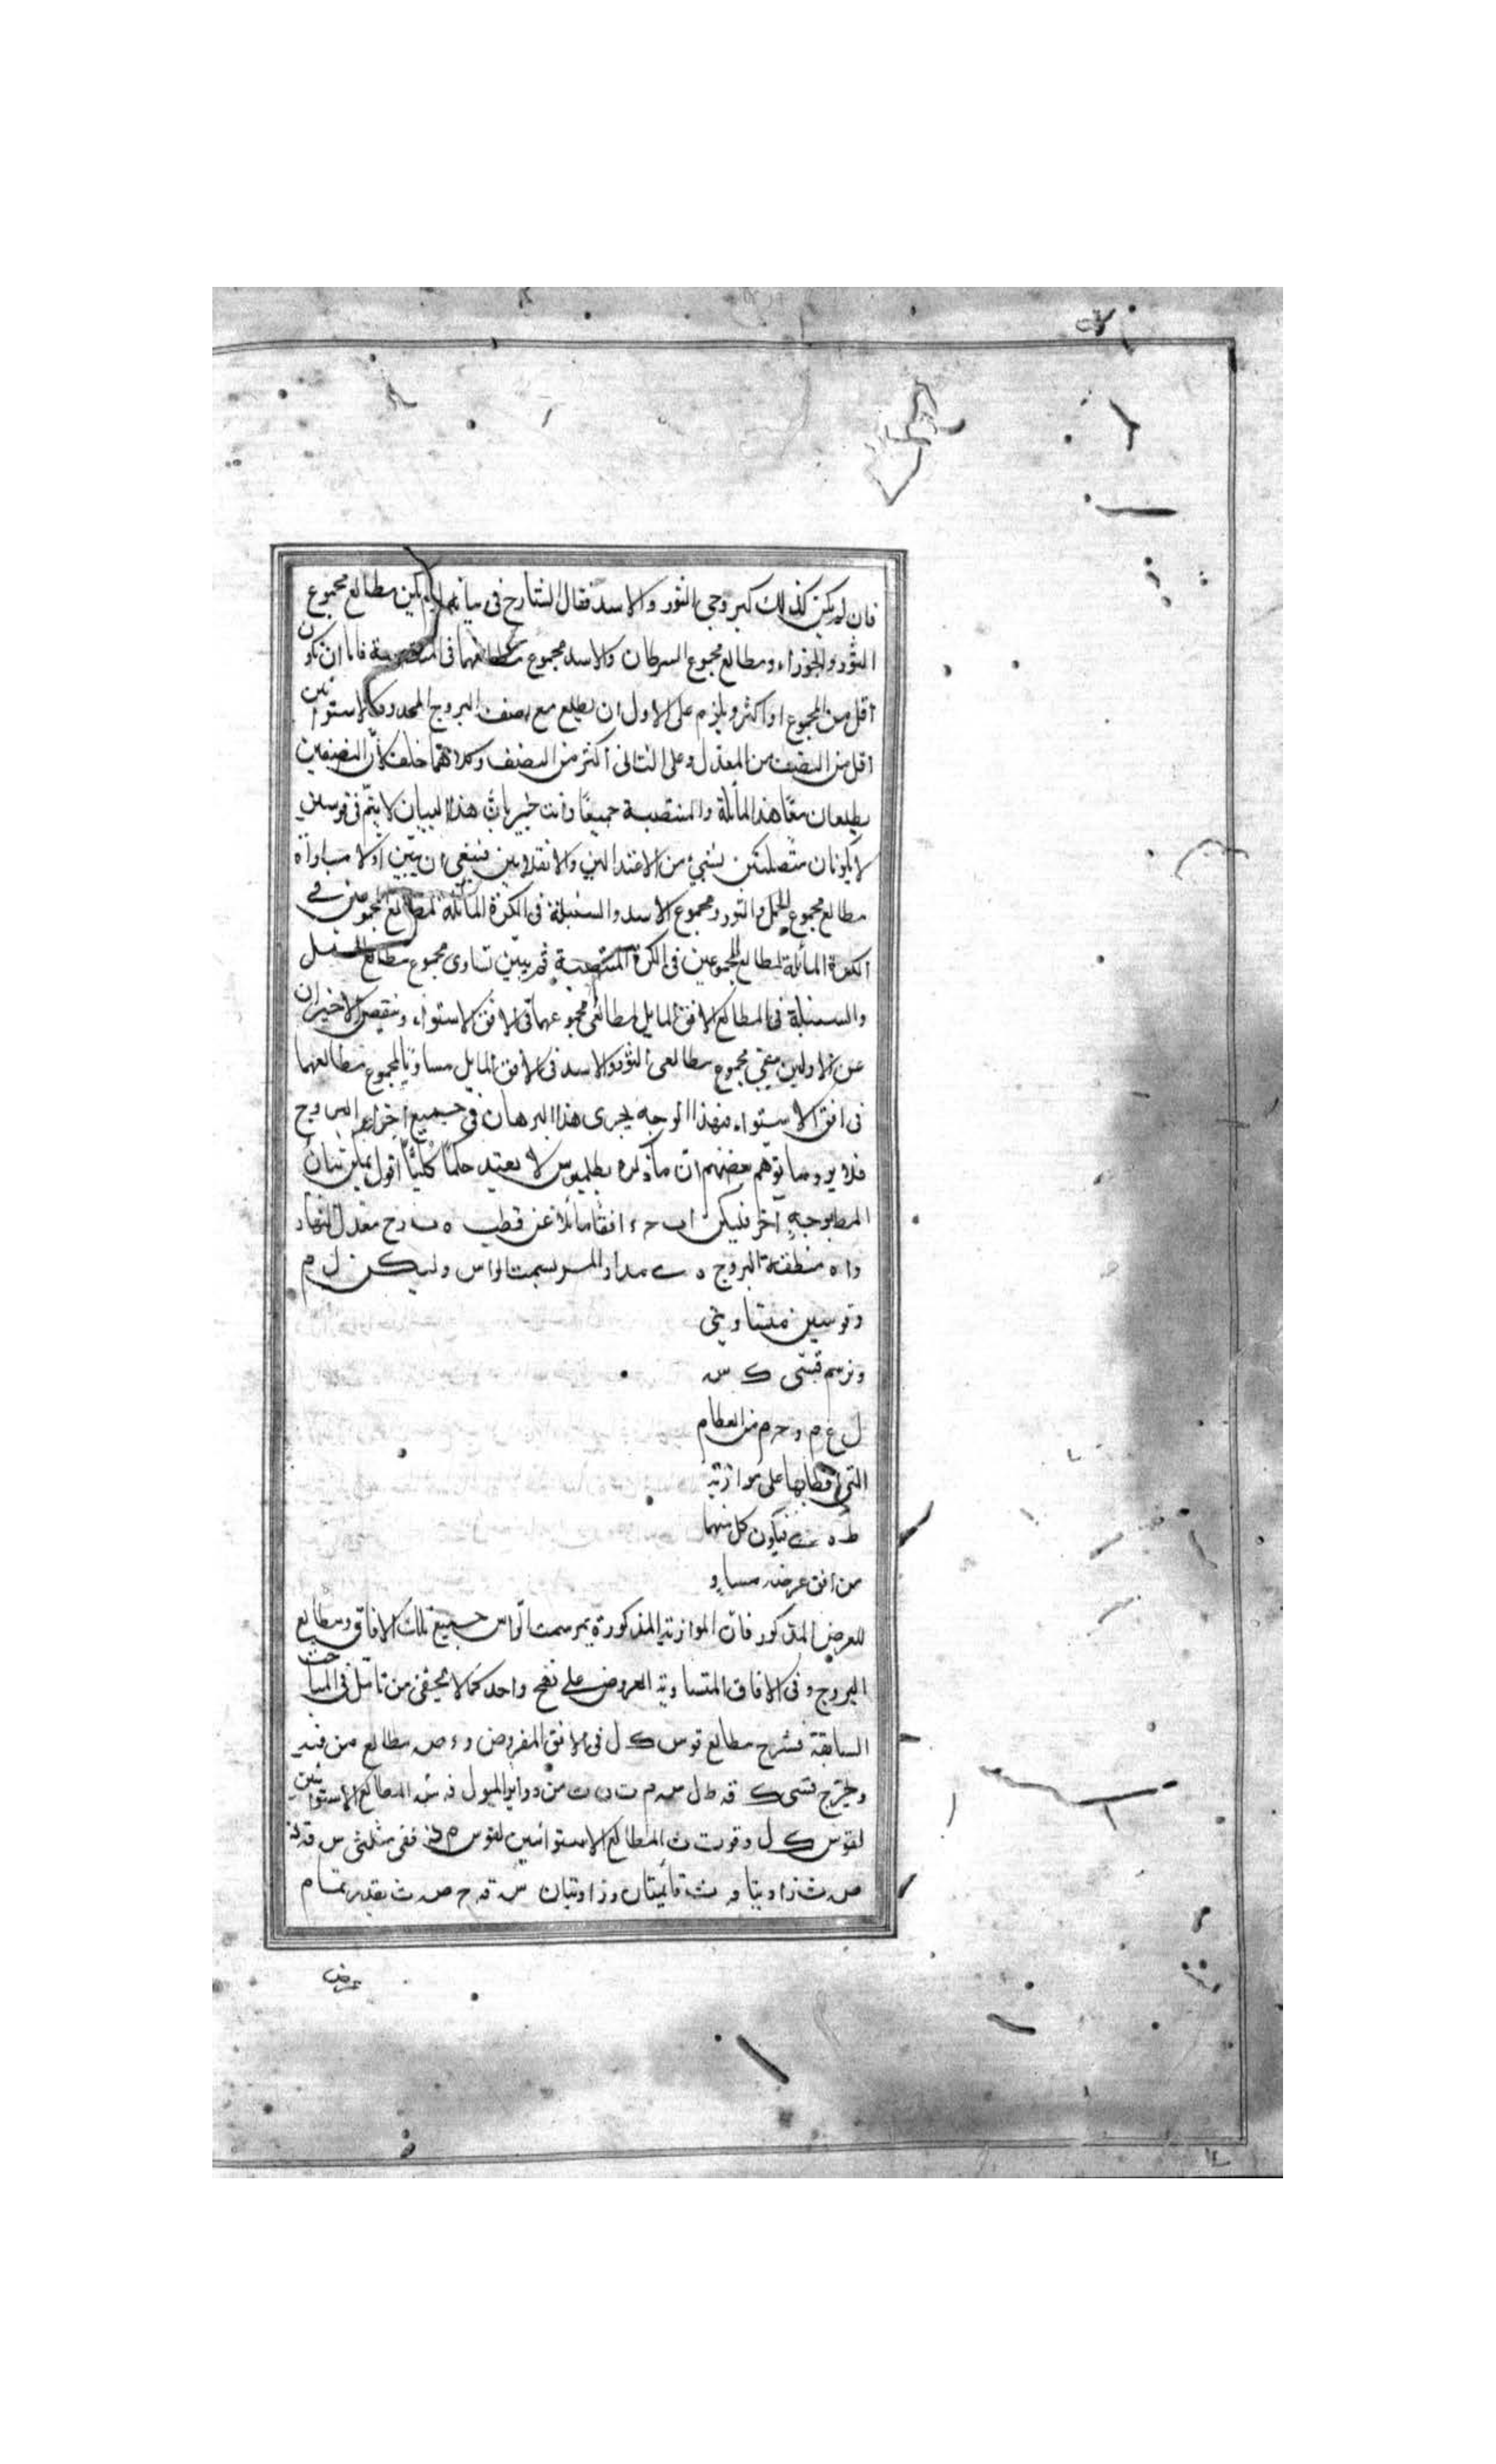 فان لم يكن كذلك كبروجى الثور والاسد فقال الشارح فى بيانه لم يكن مطالع مجموع
الثور والجوزاء ومطالع مجموع السرطان والاسد مجموع مطالعهما فى المنتصبة فاما ان يكون
اقل من المجموع او اكثر ويلزم على الاول ان يطلع مع نصف البروج المحدود بالاستوائين
اقل من النصف من المعدل وعلى الثانى اكثر من النصف وكلاهما خلف لان النصفين
يطلعان معا هذا المائلة والمنتصبة جميعا وانت خبير بان هذا البيان لا يتم فى قوسين
لا يكونان متصلتين بشىء من الاعتدالين والانقلابين فينبغى ان يبين اولا مساواة
مطالع مجموع الحمل والثور ومجموع الاسد والسنبلة فى الكرة المائلة لمطالع المجموعين فى
الكرة المائلة لمطالع المجموعين فى الكرة المنتصبة ثم يبين تساوى مجموع مطالع الحمل
والسنبلة فى المطالع الافق المايل لمطالعى مجموعهما فى الافق الاستواء وينقص الاخيران
عن الاولين فيبقى مجموع مطالعى الثور والاسد فى الافق المايل مساويا لمجموع مطالعهما
فى افق الاستواء فبهذا الوجه يجرى هذا البرهان فى جميع اجزاء البروج
فلا يرد ما توهم بعضهم ان ما ذكره بطلميوس لا يفيد حكما كليا اقول يمكن بيان
المط بوجه آخر فليكن ا ب ح ء افقا مائلا عن قطب ه ب ر ح معدل النهار
و ا ه منطقة البروج ه ى مدار المار بسمت الراس وليكن ل م
وقوسين متساويتى
ونرسم قسى ك س
ل ع م و ح م من العظام
التى اقطابها على موازية
ط ه ى فيكون كل منهما
من افق عرضه مساو
للعرض المذكور فان الموازية المذكورة يمر سمت الراس جميع تلك الافاق ومطالع
البروج فى الافاق المتساوية العروض على نهج واحد كما لا يخفى من تامل فى المباحث
السابقة فشرح مطالع قوس ك ل فى الافق المفروض و ء ص مطالع من فيه
ونخرج قسى ك قه ط ل س م ت ن ث من دوائر الميول فه ش المطالع الاستوائين
لقوس ك ل وقوت ث المطالع الاستوائين لقوس م ن ففى مثلثى س قه
ص ث زاويتا قه ث قائمتان وزاويتان س قه ح ص ث بقدر تمام
عرض